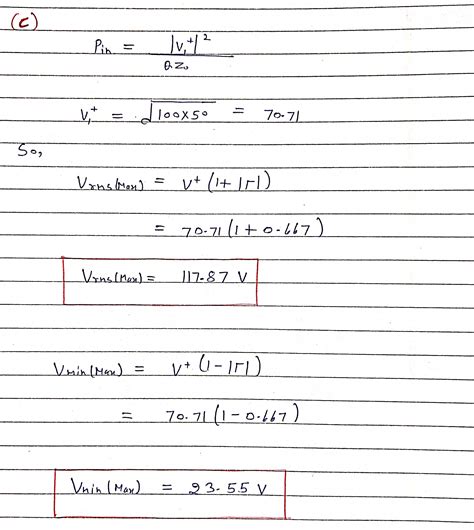 (c)
Pin = |V₁⁺|² / 2Z₀
V₁⁺ = √100×50 = 70.71
So,
Vrms(Max) = V⁺(1+|Γ|)
= 70.71(1+0.667)
Vrms(Max) = 117.87 V
Vmin(Max) = V⁺(1-|Γ|)
= 70.71(1-0.667)
Vmin(Max) = 23.55 V